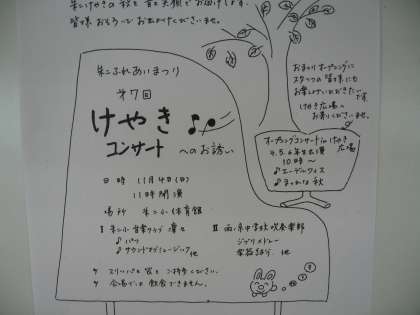 朱二けやきの秋を音と笑顔でお届けします。
皆様おそろいでお出かけくださいませ。
朱二ふれあいまつり
第7回
けやき
コンサート
へのお誘い
日時 11月4日(日)
11時開演
場所 朱二小体育館
Ⅰ 朱二小音楽クラブ
♪サウンドオブミュージック 他
Ⅱ 西ノ京中学校吹奏楽部
ジブリメドレー
楽器紹介 他
スリッパを各自ご持参ください。
会場では飲食できません。
おまつりオープニングに
スタッフの皆様にも
お楽しみいただきたい
けやき広場へ
お寄りくださいませ。
オープニングコンサート in けやき広場
4.5.6年生出演
10時〜
♪エーデルワイス
♪まっかな秋